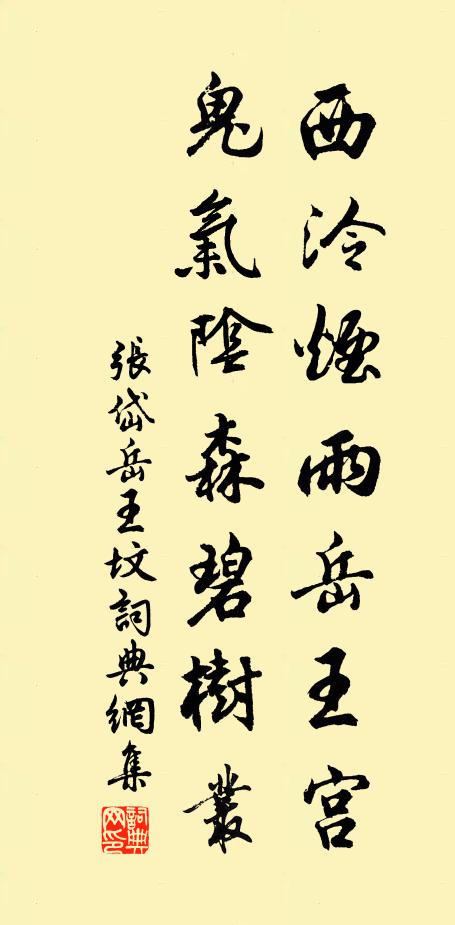 西泠煙雨岳王宮
鬼氣陰森碧樹叢
張岱岳王墳詞典網集
詞典网印